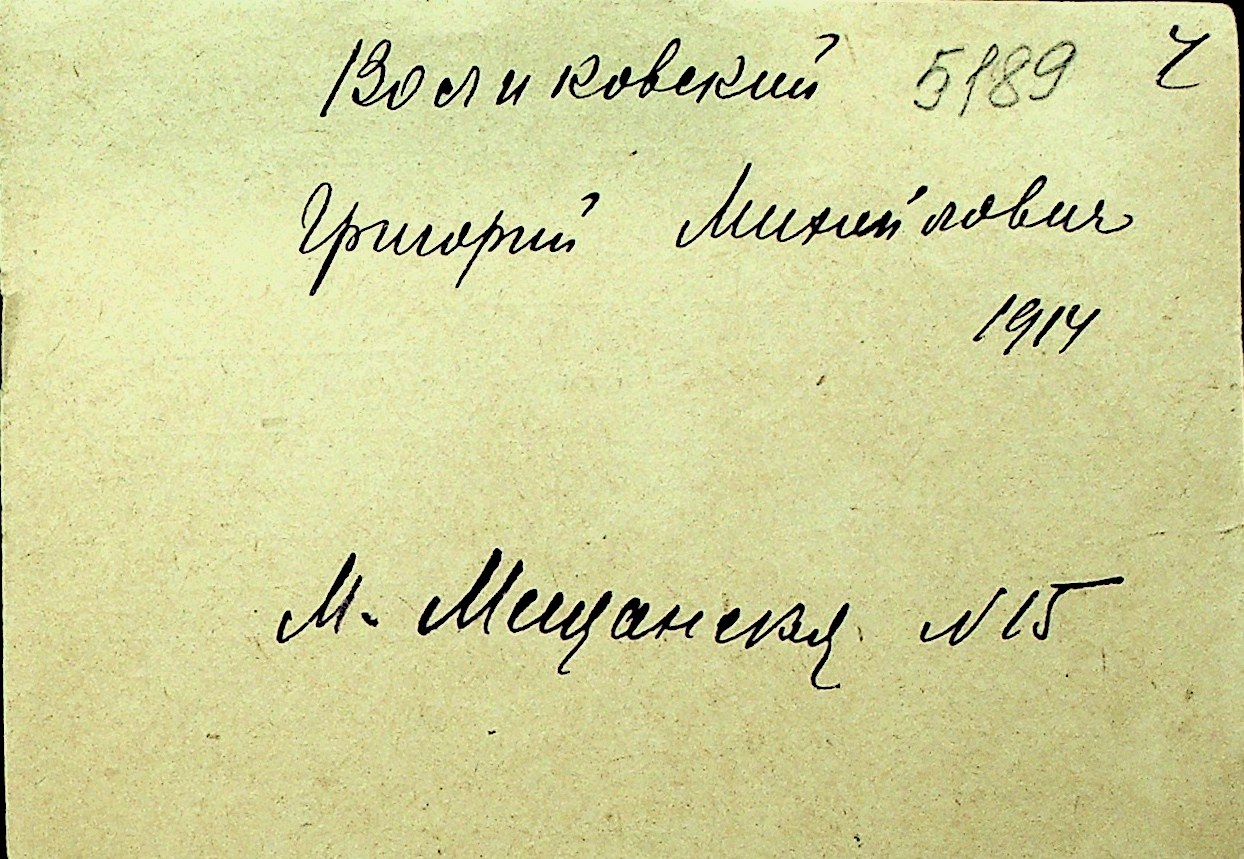 Воликовский 5189 Ч
Григорий Михайлович
1914
М. Мещанская N 15